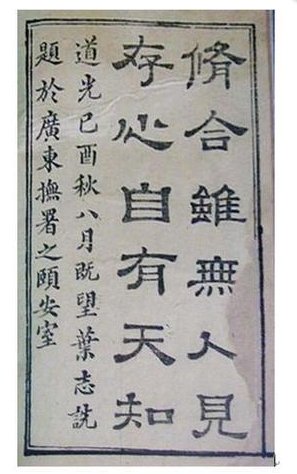 脩合雖無人見
存心自有天知
道光己酉秋八月既望葉志詵
題於廣東撫署之頤安室